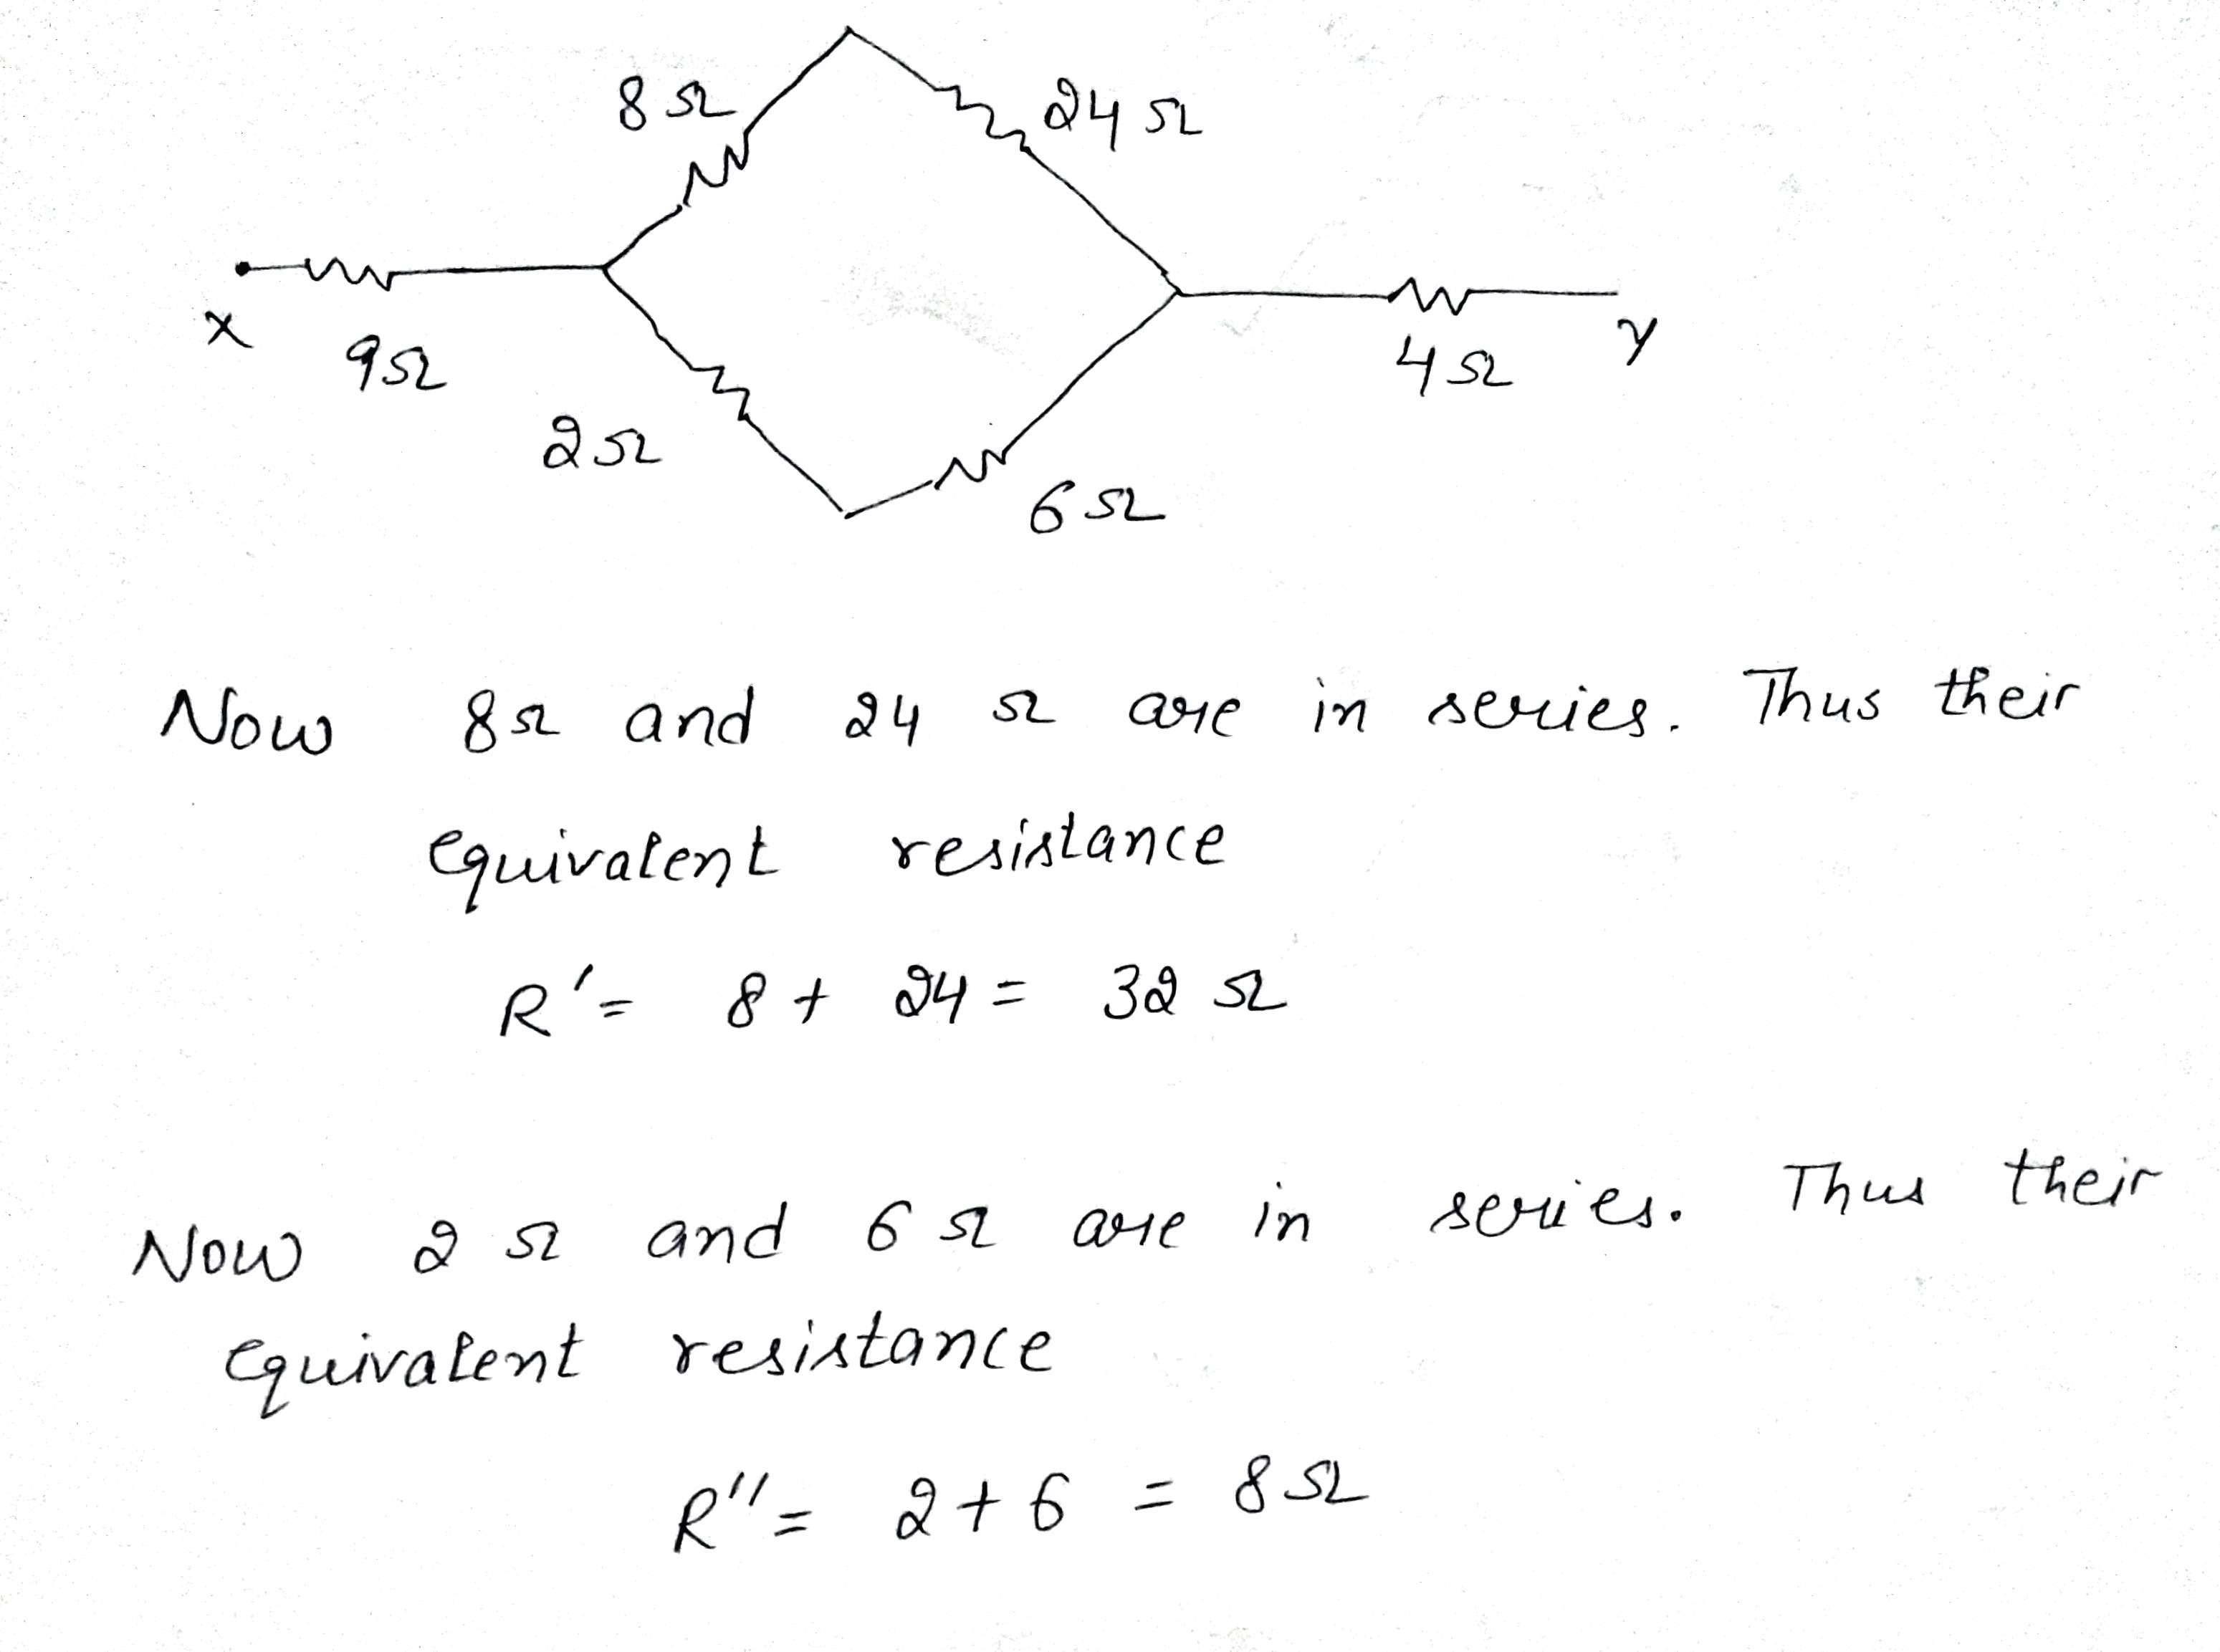 8Ω
24Ω
x
9Ω
2Ω
6Ω
4Ω
y
Now 8Ω and 24 Ω are in series. Thus their
equivalent resistance
R' = 8 + 24 = 32 Ω
Now 2 Ω and 6 Ω are in series. Thus their
equivalent resistance
R'' = 2 + 6 = 8Ω